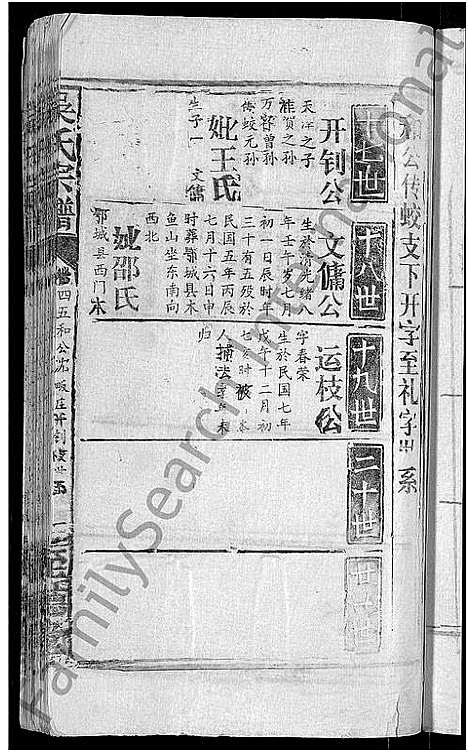 和公传蛟支下开字至礼字世系
十七世
开钊公
天注之子
维贺之孙
万容曾孙
传蛟元孙
妣王氏
生子一 文傭
十八世
文傭公
生於清光绪八
年壬午岁七月
初一日辰时年
三十有五殁於
民国五年丙辰
七月十六日申
时葬鄂城县木
鱼山坐东南向
西北
妣邵氏
鄂城县西门木
十九世
运枝公
字春荣
生於民国七年
戊午十二月初
七亥时被
人捕法
归
二十世
廿一世
吴氏宗谱
卷四五和公
开钊
FamilySearch International